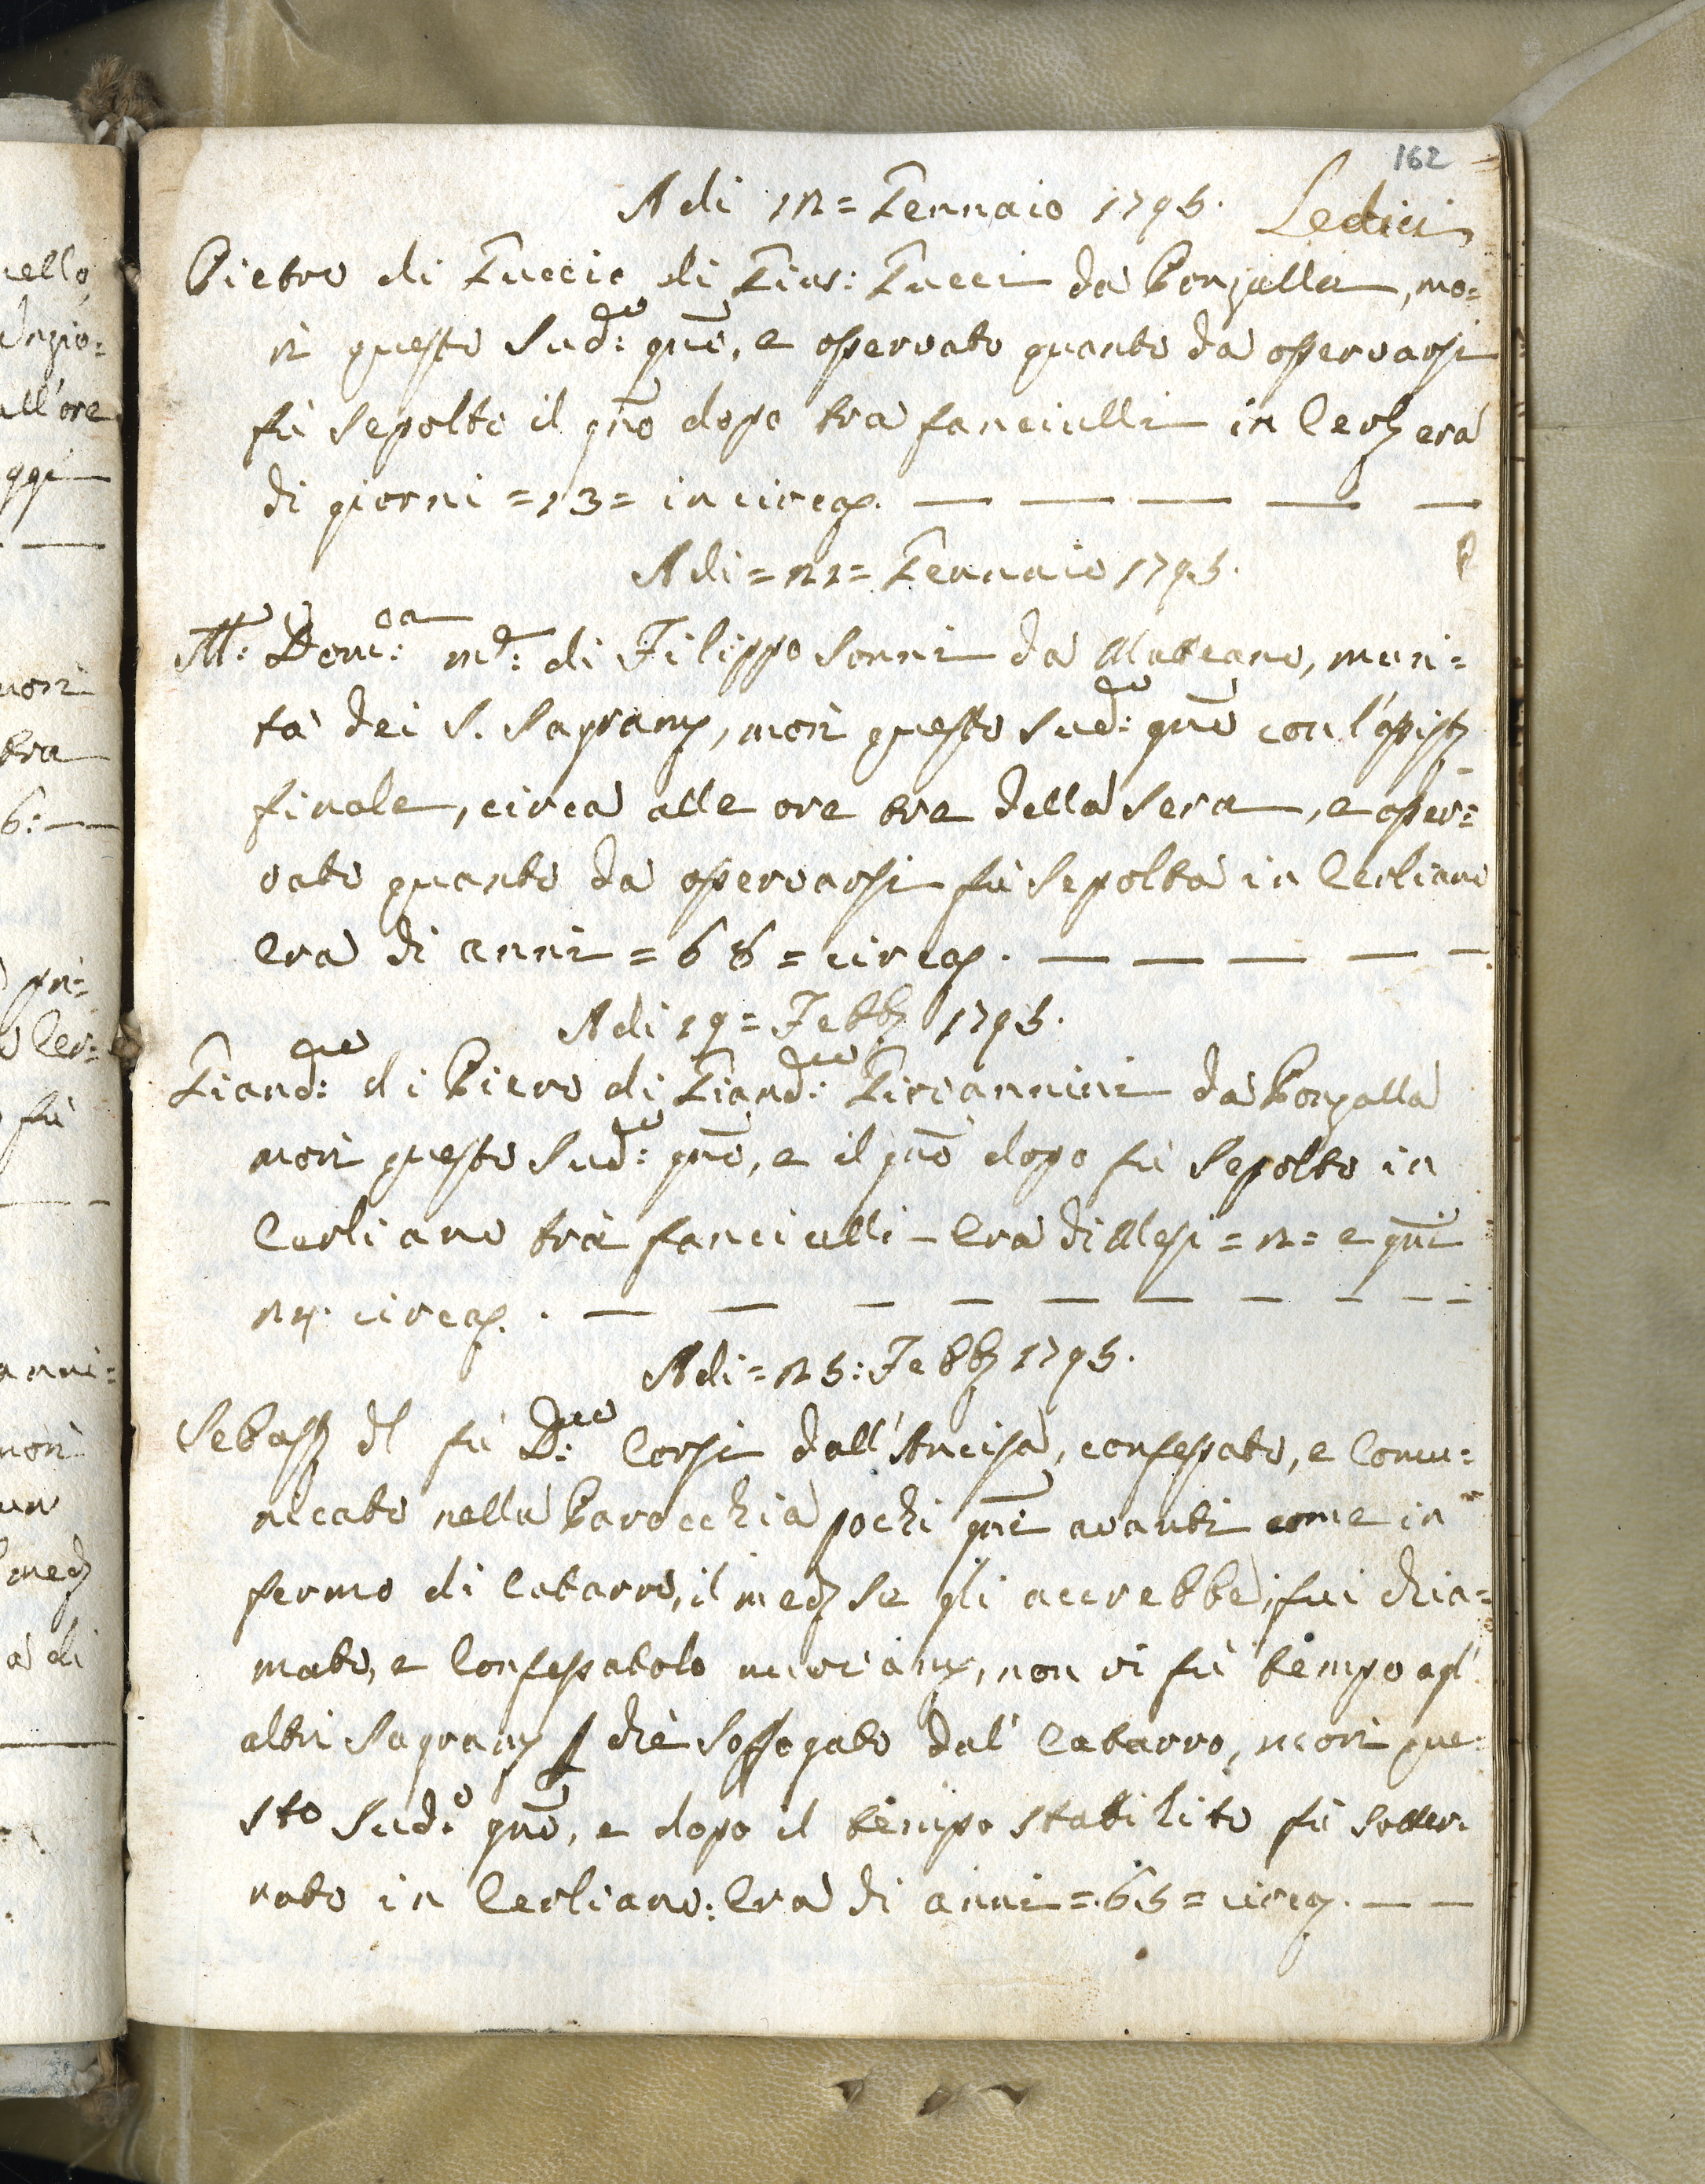 162
A di 12 = Gennaio 1795.
Pietro di Luccio di Gius: Lucci da Ponzalla, mo=
rì questo Sud:to gno, e osservato quanto da osservarsi
fù Sepolto il gno dopo tra fanciulli in Cerl: era
di giorni = 13 = in circa. — — — — —
A di = 21 = Gennaio 1795.
M: Dom:ca md: di Filippo Sonni da Mattano, muni=
ta dei S. Sagram, morì questo Sud:to gno con l'assist
finale, circa alle ore tre della Sera, e osser=
vato quanto da osservarsi fù Sepolta in Cerliano
Era di anni = 68 = circa. — — — — —
A di 19 = Febb 1795.
Giand:co di Piero di Giand:co Giovannini da Ponzalla
morì questo Sud:to gno, e il gno dopo fù Sepolto in
Cerliano trà fanciulli - Era di Mesi = 2 = e gni
24. circa. — — — — — — — — —
A di = 25: Febb 1795.
Sebast del fù D:co Corsi dall'Ancisa, confessato, e Comu=
nicato nella Parocchia pochi gni avanti come in
fermo di Catarro, il med se gli accrebbe, fui chia=
mato, e Confessatolo nuovam, non vi fù tempo agl'
altri Sagram che Soffogato dal' Catarro, morì que=
sto Sud:o gno, e dopo il tempo stabilito fù Sotter=
rato in Cerliano: Era di anni = 65 = circa. — —